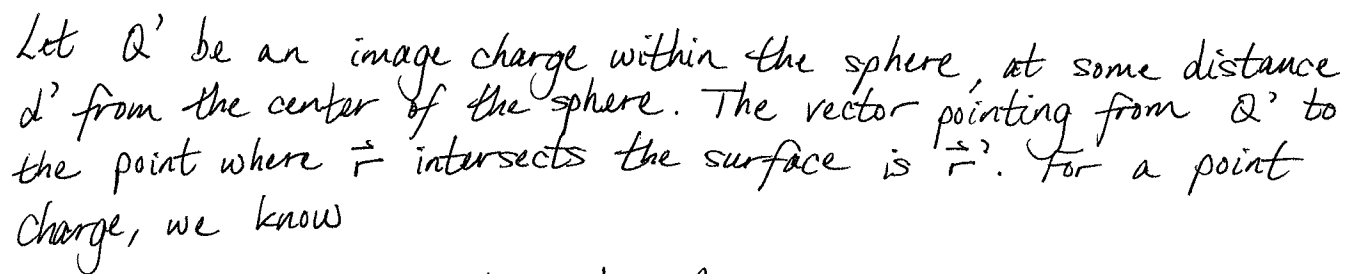 Let Q' be an image charge within the sphere, at some distance
d' from the center of the sphere. The vector pointing from Q' to
the point where r⃗ intersects the surface is r⃗'. For a point
charge, we know